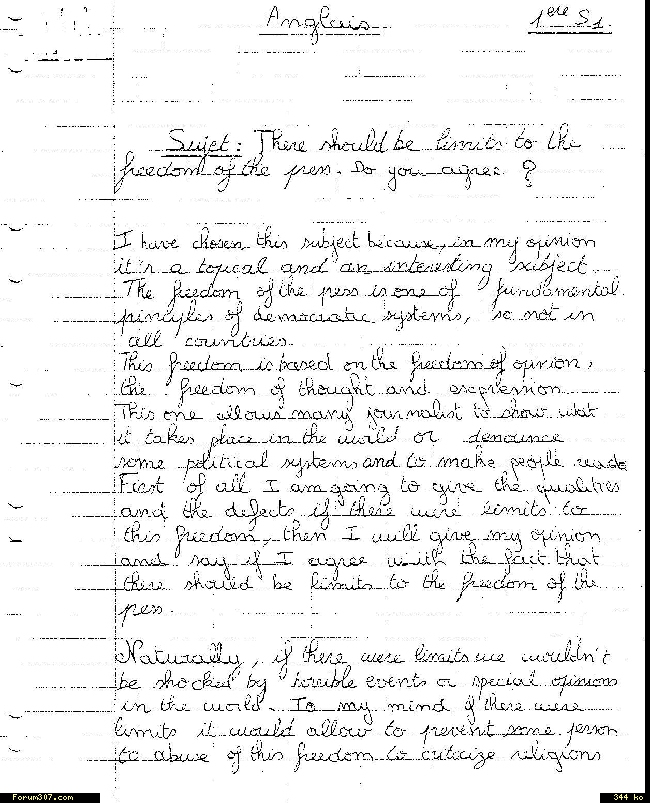 Anglais
1ere S1.
Sujet: There should be limits to the
freedom of the press. Do you agree ?
I have chosen this subject because, in my opinion
it's a topical and an interesting subject.
The freedom of the press is one of fundamental
principles of democratic systems, so not in
all countries.
This freedom is based on the freedom of opinion,
the freedom of thought and expression
This one allows many journalist to show what
it takes place in the world or denounce
some political systems and to make people
First of all I am going to give the qualities
and the defects if there were limits to
this freedom, then I will give my opinion
and say if I agree with the fact that
there should be limits to the freedom of the
press.
Naturally, if there were limits we wouldn't
be shocked by horrible events or special opinions
in the world. To my mind if there were
limits it would allow to prevent some person
to abuse of this freedom to criticize religions
Forum307.com
344 ko